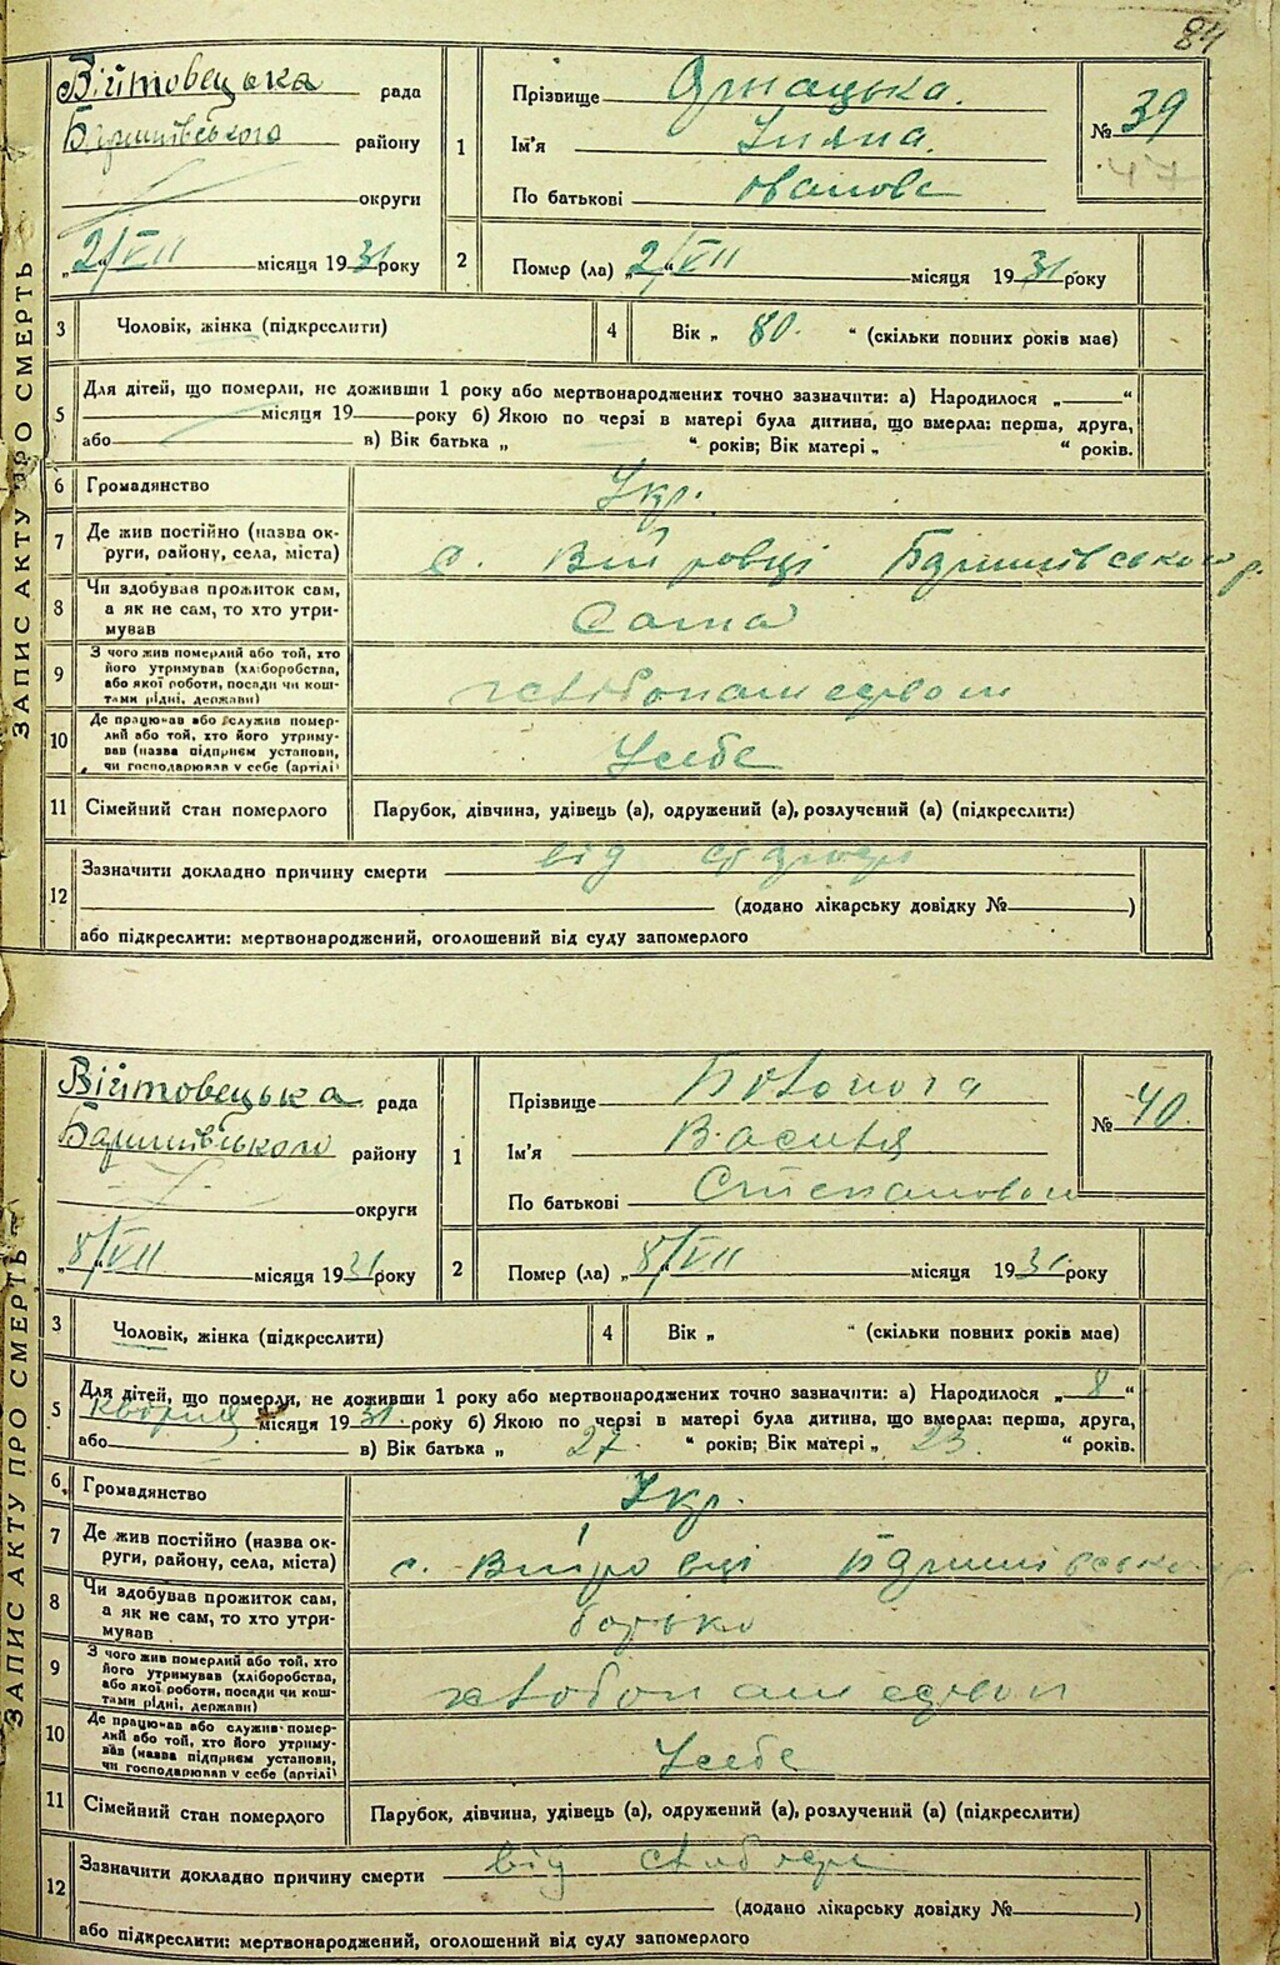 84
ЗАПИС АКТУ ПРО СМЕРТЬ
Війтовецька рада
Баришівського району
округи
„2/VII місяця 1931 року
1
Прізвище
Ім'я Уляна.
По батькові Іванова
№ 39
47
2
Помер (ла) „2/VII місяця 1931 року
3 Чоловік, жінка (підкреслити)
4 Вік „ 80. “ (скільки повних років має)
5 Для дітей, що померли, не доживши 1 року або мертвонароджених точно зазначити: а) Народилося „ “
місяця 19 року б) Якою по черзі в матері була дитина, що вмерла: перша, друга,
або в) Вік батька „ “ років; Вік матері „ “ років.
6 Громадянство Укр.
7 Де жив постійно (назва ок-
руги, району, села, міста) с. Баришівського р.
8 Чи здобував прожиток сам,
а як не сам, то хто утри-
мував Сама
9 З чого жив померлий або той, хто
його утримував (хліборобства,
або якої роботи, посади чи кош-
тами рідні, держави)
10 Де працював або служив помер-
лий або той, хто його утриму-
вав (назва підприєм установи,
чи господарював у себе (артілі) У себе
11 Сімейний стан померлого Парубок, дівчина, удівець (а), одружений (а), розлучений (а) (підкреслити)
12 Зазначити докладно причину смерти від
(додано лікарську довідку № )
або підкреслити: мертвонароджений, оголошений від суду запомерлого
ЗАПИС АКТУ ПРО СМЕРТЬ
Війтовецька рада
Баришівського району
округи
„8/VII місяця 1931 року
1
Прізвище
Ім'я Василя
По батькові Степанович
№ 40.
2
Помер (ла) „8/VII місяця 1931. року
3 Чоловік, жінка (підкреслити)
4 Вік „ “ (скільки повних років має)
5 Для дітей, що померли, не доживши 1 року або мертвонароджених точно зазначити: а) Народилося „ 8 “
місяця 1931. року б) Якою по черзі в матері була дитина, що вмерла: перша, друга,
або в) Вік батька „ 27. “ років; Вік матері „ 23. “ років.
6 Громадянство Укр.
7 Де жив постійно (назва ок-
руги, району, села, міста) с. Баришівського р.
8 Чи здобував прожиток сам,
а як не сам, то хто утри-
мував батько
9 З чого жив померлий або той, хто
його утримував (хліборобства,
або якої роботи, посади чи кош-
тами рідні, держави)
10 Де працював або служив помер-
лий або той, хто його утриму-
вав (назва підприєм установи,
чи господарював у себе (артілі) У себе
11 Сімейний стан померлого Парубок, дівчина, удівець (а), одружений (а), розлучений (а) (підкреслити)
12 Зазначити докладно причину смерти від
(додано лікарську довідку № )
або підкреслити: мертвонароджений, оголошений від суду запомерлого